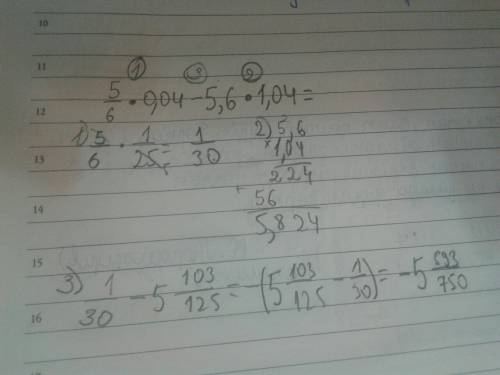 10
11
① ③ ②
5/6 · 0,04 − 5,6 · 1,04 =
12
1) 5/6 · 1/25 = 1/30
2) 5,6
× 1,04
224
+ 56
5,824
13
14
15
3) 1/30 − 5 103/125 = −(5 103/125 − 1/30) = −5 593/750
16